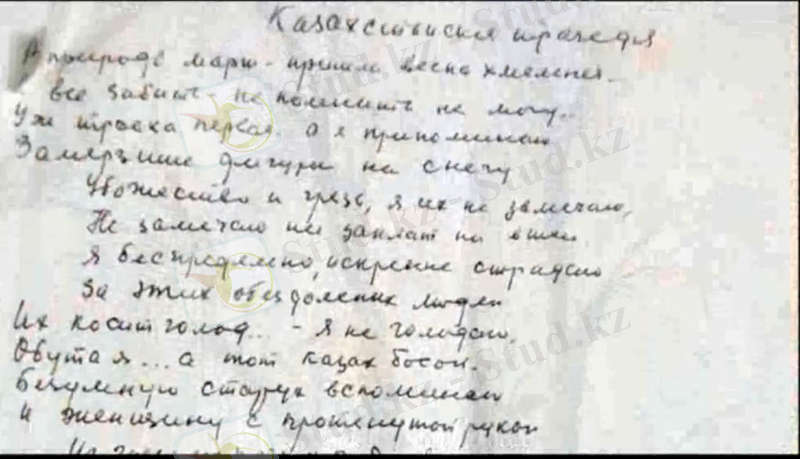 Казахстанская трагедия
В природе март - пришла весна хмельная.
Все забыть - не помнить не могу..
Уж травка первая. а я припоминаю
Замерзшие фигуры на снегу
Убожество и грязь, я их не замечаю,
Не замечаю ни заплат ни вшей.
Я беспредельно, искренне страдаю
За этих обездоленных людей
Их косит голод... - Я не голодаю,
Обута я... а тот казах босой.
Безумную старух вспоминаю
И женщину с протянутой рукой
Stud.kz - Stud.kz
Stud.kz - Stud.kz